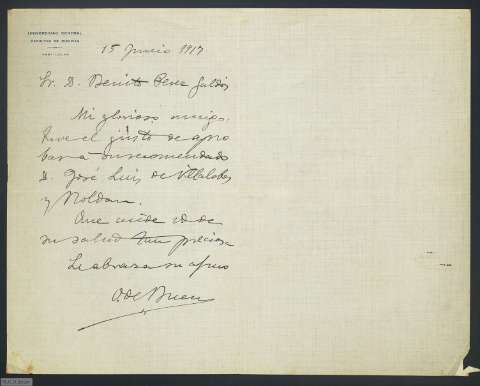 UNIVERSIDAD CENTRAL
FACULTAD DE CIENCIAS
15 Junio 1917
Sr. D. Benito Perez Galdós
Mi glorioso amigo:
Tuve el gusto de apro
bar á su recomendado
D. José Luis de Villalobos
y Roldan.
Que cuide vd de
su salud tan preciosa
Le abraza su afmo
O. de Buen